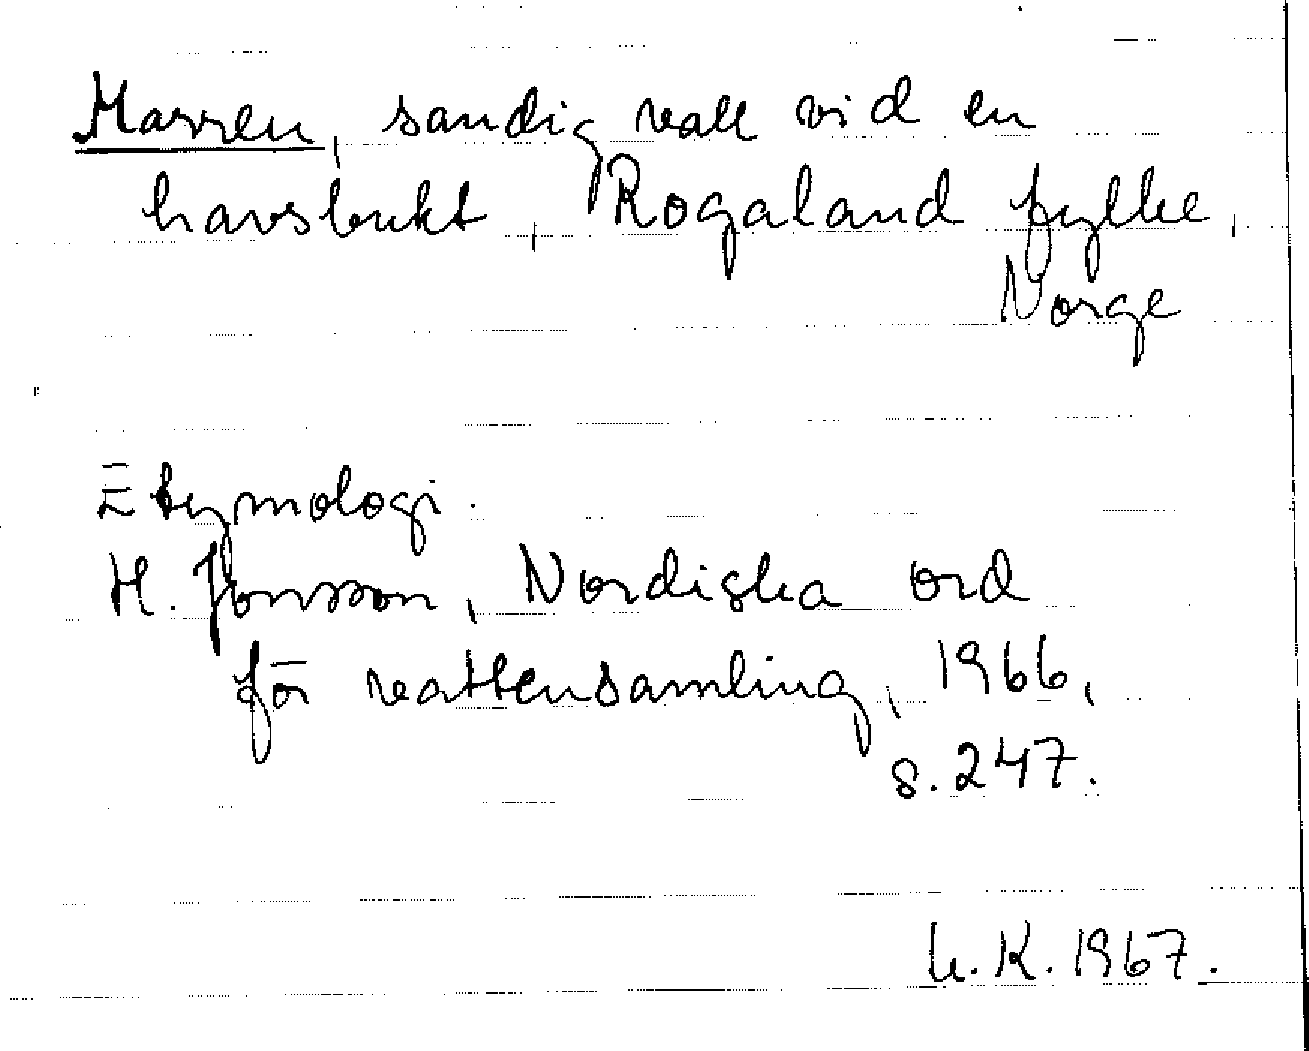 Marren, sandig vall vid en
havsbukt, Rogaland fylke,
Norge
Etymologi.
H. Jonsson, Nordiska ord
för vattensamling, 1966,
s. 247.
K. 1967.